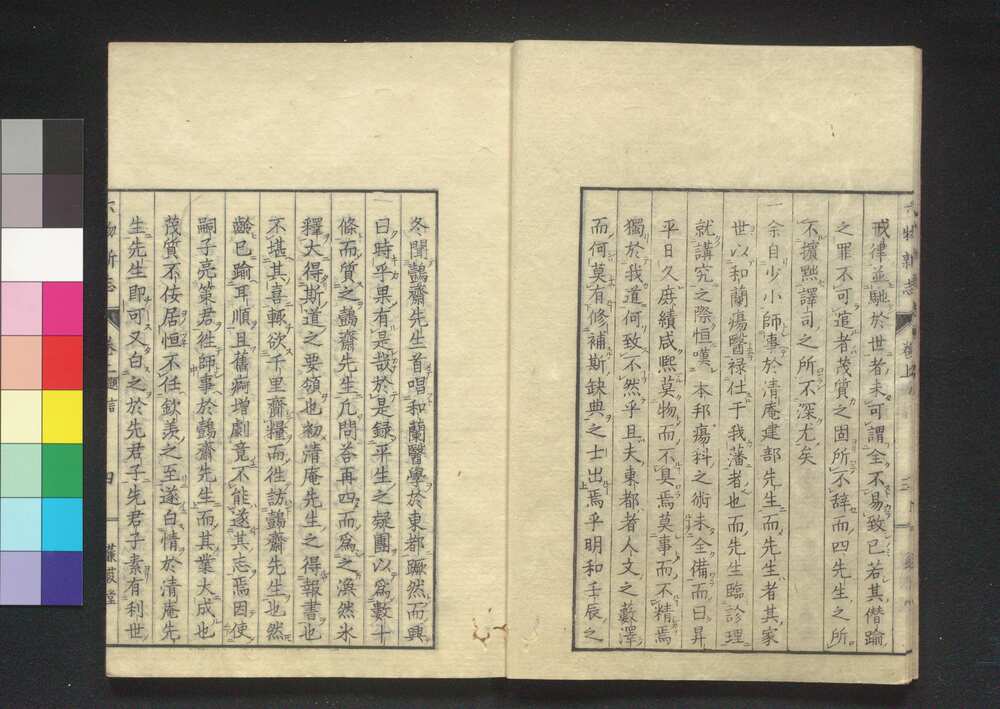 戒律並馳於世者未可謂全不易致已若其僭踰
之罪不可逭者茂質之固所不辞而四先生之所
不攘熙譯司之所不深尤矣
一余自少小師事於清庵建部先生而先生者其家
世以和蘭瘍醫禄仕于我藩者也而先生臨診理
就講究之際恒嘆本邦瘍科之術未全備而曰昇
平日久庶績咸熙莫物而不具焉莫事而不精焉
獨於我道何致不然乎且夫東都者人文之藪澤
而何莫有修補斯缺典之士出焉乎明和壬辰之
六物新志
卷上
冬聞鷧齋先生首唱和蘭醫學於東都蹶然而興
曰時乎果有是哉於是録平生之疑團以為數十
條而質之鷧齋先生凢問荅再四而為之渙然氷
釋大得斯道之要領也初清庵先生之得報書也
不堪其喜輙欲千里齎糧而徃訪鷧齋先生也然
齡已踰耳順且舊痾增劇竟不能遂其志焉因使
嗣子亮策君徃師事於鷧齋先生而其業大成也
茂質不佞居恒不任欽羨之至遂白情於清庵先
生先生即可又白之於先君子先君子素有利世
六物新志
卷上題言
四
蒹葭堂